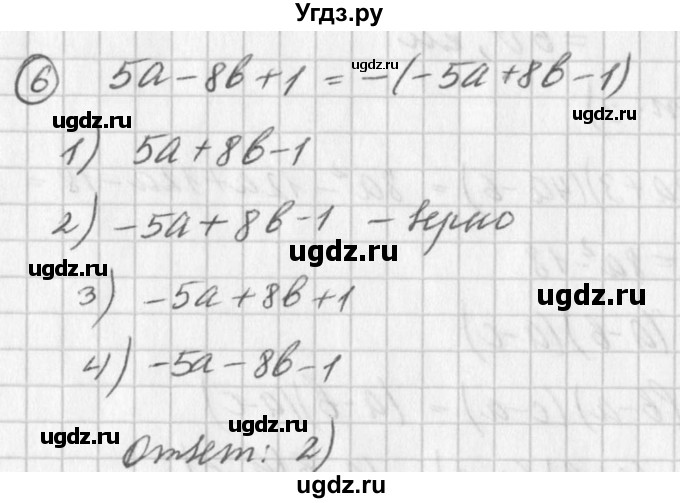 Угдз.ру
6 5a-8b+1 = -(-5a+8b-1)
ugdz.ru
ugdz.ru
ugdz.ru
1) 5a+8b-1
2) -5a+8b-1 - верно
ugdz.ru
ugdz.ru
3) -5a+8b+1
ugdz.ru
ugdz.ru
4) -5a-8b-1
ugdz.ru
ugdz.ru
Ответ: 2)
ugdz.ru
ugdz.ru